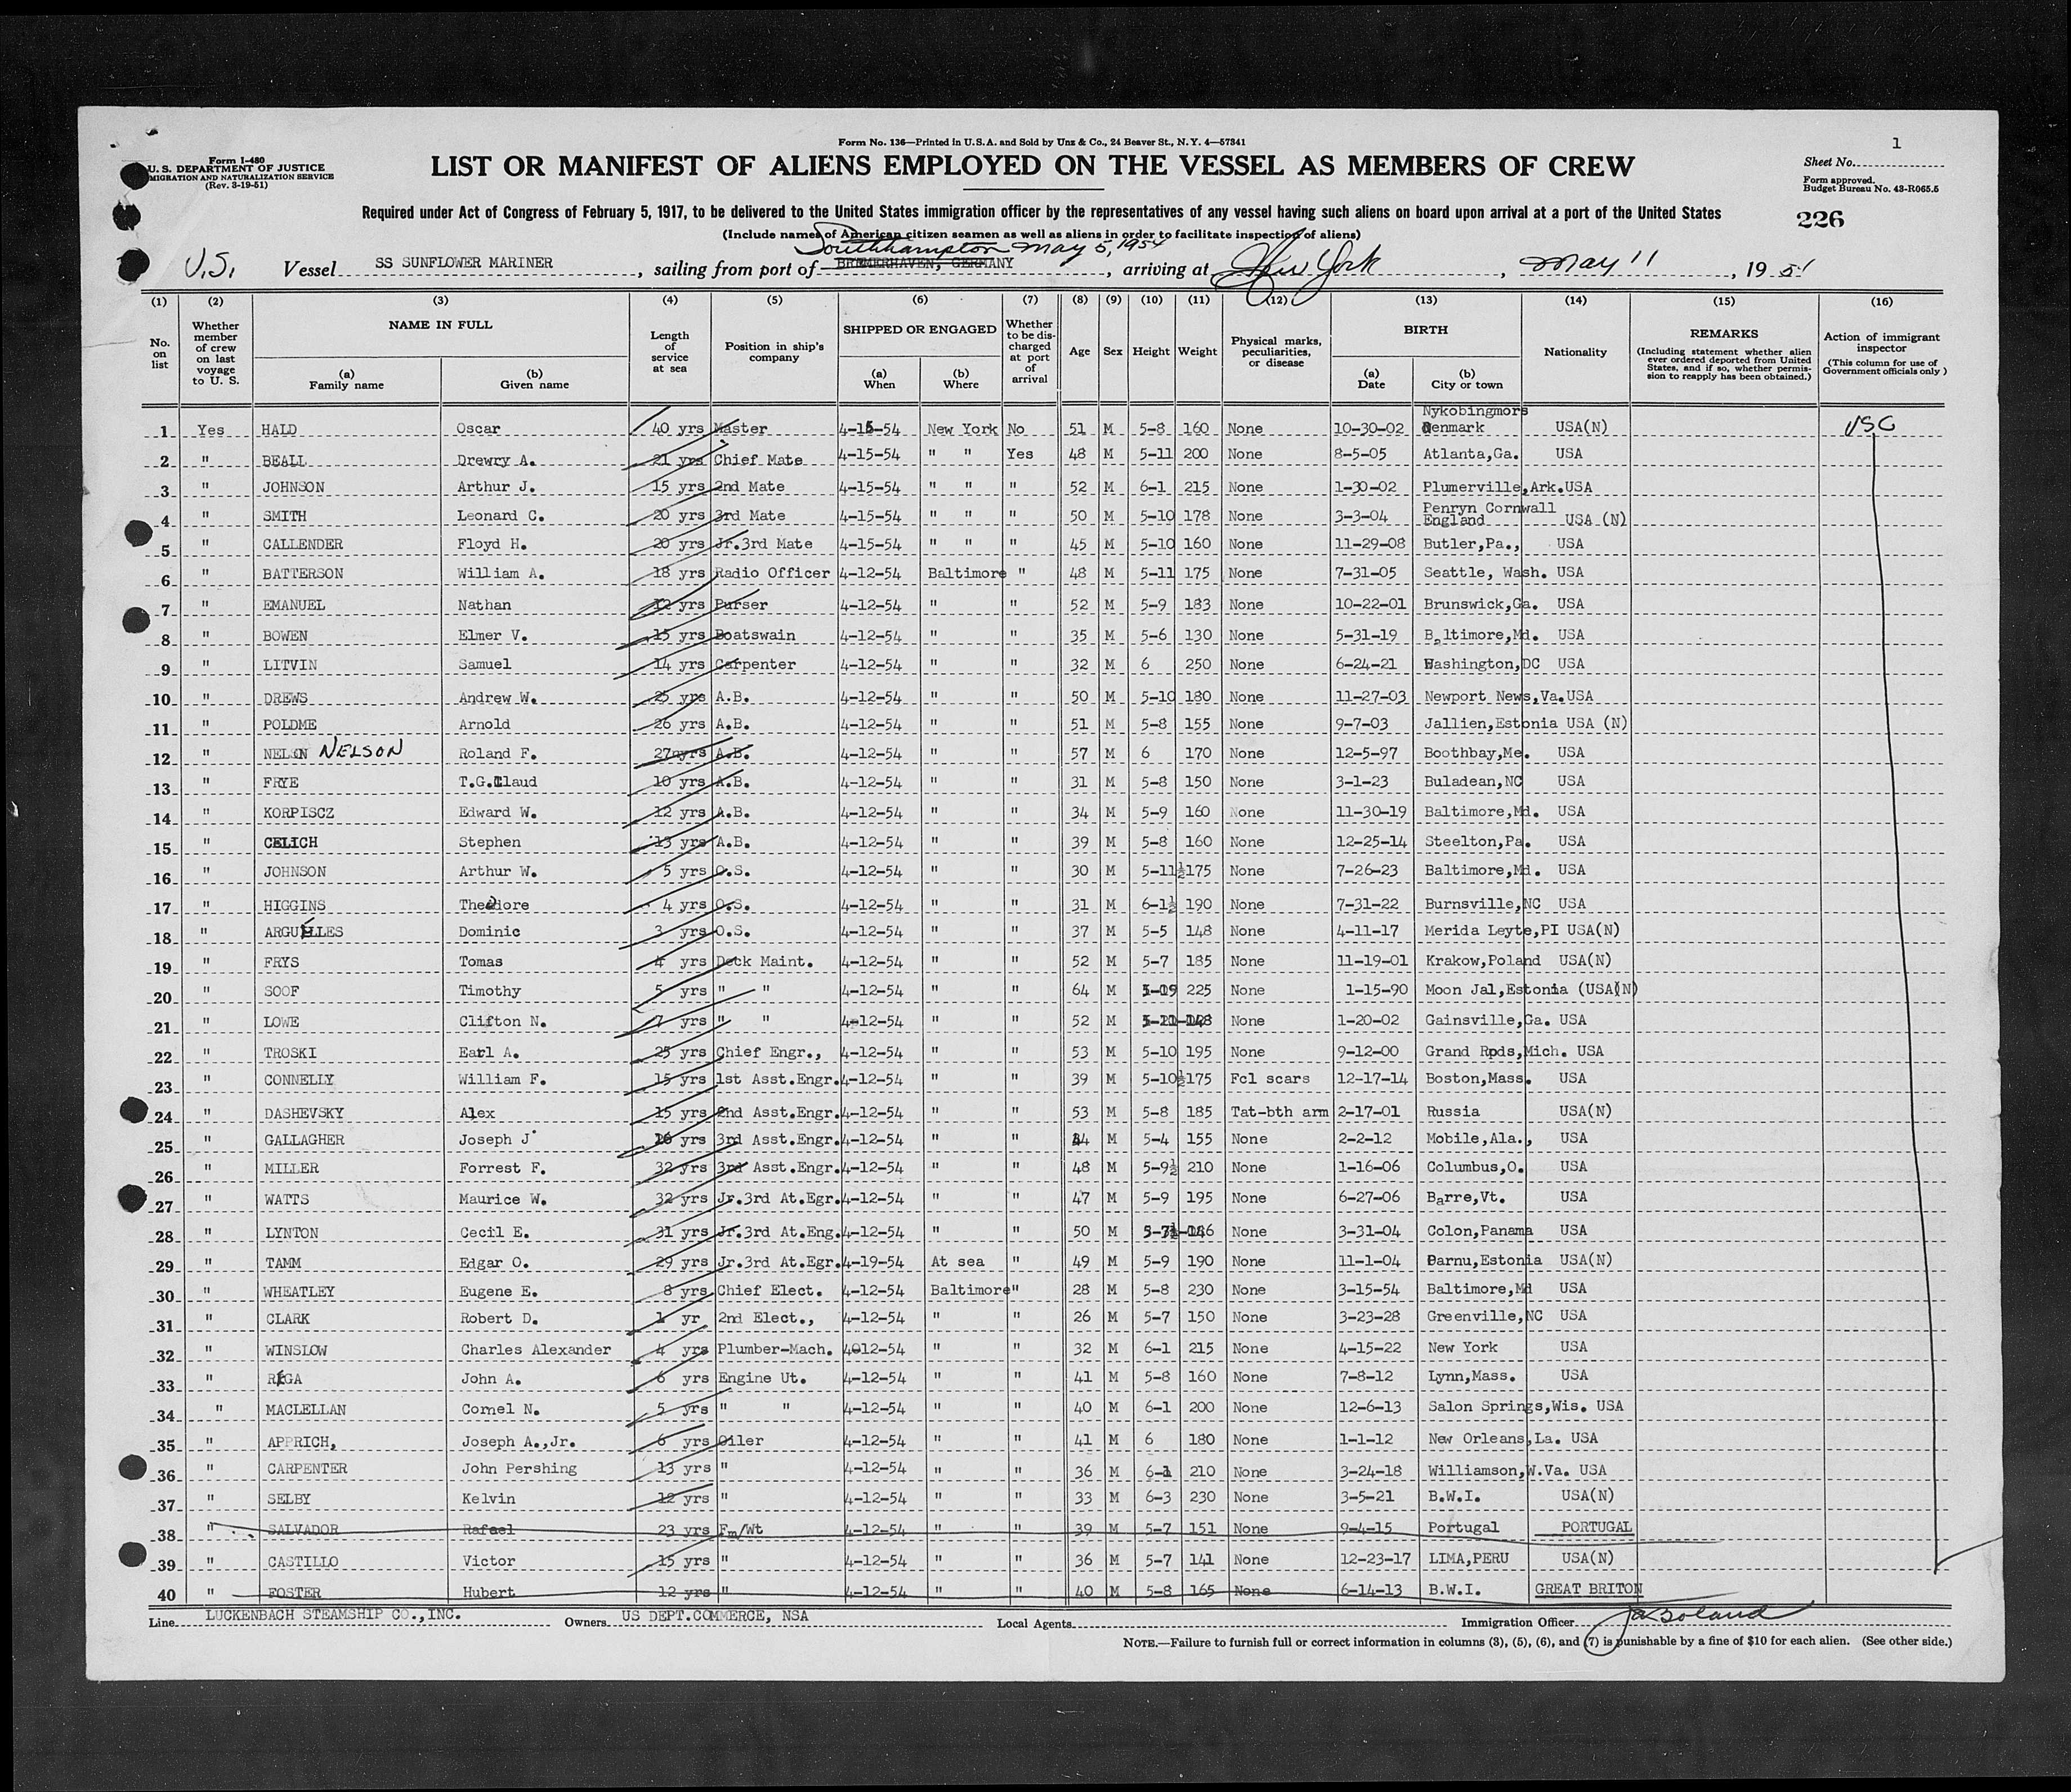 Form No. 136—Printed in U.S.A. and Sold by Unz & Co., 24 Beaver St., N.Y. 4—57841
1
Form I-480
U. S. DEPARTMENT OF JUSTICE
MIGRATION AND NATURALIZATION SERVICE
(Rev. 3-19-51)
LIST OR MANIFEST OF ALIENS EMPLOYED ON THE VESSEL AS MEMBERS OF CREW
Sheet No.
Form approved.
Budget Bureau No. 43-R065.5
Required under Act of Congress of February 5, 1917, to be delivered to the United States immigration officer by the representatives of any vessel having such aliens on board upon arrival at a port of the United States
226
(Include names of American citizen seamen as well as aliens in order to facilitate inspection of aliens)
Southhampton May 5, 1954
U.S. Vessel SS SUNFLOWER MARINER, sailing from port of BREMERHAVEN, GERMANY, arriving at New York, May 11, 1954
(1) (2) (3) (4) (5) (6) (7) (8) (9) (10) (11) (12) (13) (14) (15) (16)
No. on list
Whether member of crew on last voyage to U. S.
NAME IN FULL
(a) Family name
(b) Given name
Length of service at sea
Position in ship's company
SHIPPED OR ENGAGED
(a) When
(b) Where
Whether to be discharged at port of arrival
Age
Sex
Height
Weight
Physical marks, peculiarities, or disease
BIRTH
(a) Date
(b) City or town
Nationality
REMARKS
(Including statement whether alien ever ordered deported from United States, and if so, whether permission to reapply has been obtained.)
Action of immigrant inspector
(This column for use of Government officials only)
1 Yes HALD Oscar 40 yrs Master 4-15-54 New York No 51 M 5-8 160 None 10-30-02 Nykobingmors Denmark USA(N) USC
2 " BEALL Drewry A. 21 yrs Chief Mate 4-15-54 " " Yes 48 M 5-11 200 None 8-5-05 Atlanta,Ga. USA
3 " JOHNSON Arthur J. 15 yrs 2nd Mate 4-15-54 " " " 52 M 6-1 215 None 1-30-02 Plumerville,Ark.USA
4 " SMITH Leonard C. 20 yrs 3rd Mate 4-15-54 " " " 50 M 5-10 178 None 3-3-04 Penryn Cornwall England USA (N)
5 " CALLENDER Floyd H. 20 yrs Jr.3rd Mate 4-15-54 " " " 45 M 5-10 160 None 11-29-08 Butler,Pa., USA
6 " BATTERSON William A. 18 yrs Radio Officer 4-12-54 Baltimore " 48 M 5-11 175 None 7-31-05 Seattle, Wash. USA
7 " EMANUEL Nathan 12 yrs Purser 4-12-54 " " 52 M 5-9 183 None 10-22-01 Brunswick,Ga. USA
8 " BOWEN Elmer V. 15 yrs Boatswain 4-12-54 " " 35 M 5-6 130 None 5-31-19 Baltimore,Md. USA
9 " LITVIN Samuel 14 yrs Carpenter 4-12-54 " " 32 M 6 250 None 6-24-21 Washington,DC USA
10 " DREWS Andrew W. 25 yrs A.B. 4-12-54 " " 50 M 5-10 180 None 11-27-03 Newport News,Va.USA
11 " POLDME Arnold 26 yrs A.B. 4-12-54 " " 51 M 5-8 155 None 9-7-03 Jallien,Estonia USA (N)
12 " NELSN NELSON Roland F. 27 yrs A.B. 4-12-54 " " 57 M 6 170 None 12-5-97 Boothbay,Me. USA
13 " FRYE T.G.Claud 10 yrs A.B. 4-12-54 " " 31 M 5-8 150 None 3-1-23 Buladean,NC USA
14 " KORPISCZ Edward W. 12 yrs A.B. 4-12-54 " " 34 M 5-9 160 None 11-30-19 Baltimore,Md. USA
15 " CELICH Stephen 13 yrs A.B. 4-12-54 " " 39 M 5-8 160 None 12-25-14 Steelton,Pa. USA
16 " JOHNSON Arthur W. 5 yrs O.S. 4-12-54 " " 30 M 5-11½ 175 None 7-26-23 Baltimore,Md. USA
17 " HIGGINS Theodore 4 yrs O.S. 4-12-54 " " 31 M 6-1½ 190 None 7-31-22 Burnsville,NC USA
18 " ARGUELLES Dominic 3 yrs O.S. 4-12-54 " " 37 M 5-5 148 None 4-11-17 Merida Leyte,PI USA(N)
19 " FRYS Tomas 4 yrs Deck Maint. 4-12-54 " " 52 M 5-7 185 None 11-19-01 Krakow,Poland USA(N)
20 " SOOF Timothy 5 yrs " " 4-12-54 " " 64 M 225 None 1-15-90 Moon Jal,Estonia (USA(N)
21 " LOWE Clifton N. 7 yrs " " 4-12-54 " " 52 M None 1-20-02 Gainsville,Ga. USA
22 " TROSKI Earl A. 25 yrs Chief Engr., 4-12-54 " " 53 M 5-10 195 None 9-12-00 Grand Rpds,Mich. USA
23 " CONNELLY William F. 15 yrs 1st Asst.Engr. 4-12-54 " " 39 M 5-10½ 175 Fcl scars 12-17-14 Boston,Mass. USA
24 " DASHEVSKY Alex 15 yrs 2nd Asst.Engr. 4-12-54 " " 53 M 5-8 185 Tat-bth arm 2-17-01 Russia USA(N)
25 " GALLAGHER Joseph J 16 yrs 3rd Asst.Engr. 4-12-54 " " M 5-4 155 None 2-2-12 Mobile,Ala., USA
26 " MILLER Forrest F. 32 yrs 3rd Asst.Engr. 4-12-54 " " 48 M 5-9½ 210 None 1-16-06 Columbus,O. USA
27 " WATTS Maurice W. 32 yrs Jr.3rd At.Egr. 4-12-54 " " 47 M 5-9 195 None 6-27-06 Barre,Vt. USA
28 " LYNTON Cecil E. 31 yrs Jr.3rd At.Eng. 4-12-54 " " 50 M 5-7½ None 3-31-04 Colon,Panama USA
29 " TAMM Edgar O. 29 yrs Jr.3rd At.Egr. 4-19-54 At sea " 49 M 5-9 190 None 11-1-04 Parnu,Estonia USA(N)
30 " WHEATLEY Eugene E. 8 yrs Chief Elect. 4-12-54 Baltimore " 28 M 5-8 230 None 3-15-54 Baltimore,Md USA
31 " CLARK Robert D. 1 yr 2nd Elect., 4-12-54 " " 26 M 5-7 150 None 3-23-28 Greenville,NC USA
32 " WINSLOW Charles Alexander 4 yrs Plumber-Mach. 4012-54 " " 32 M 6-1 215 None 4-15-22 New York USA
33 " John A. 6 yrs Engine Ut. 4-12-54 " " 41 M 5-8 160 None 7-8-12 Lynn,Mass. USA
34 " MACLELLAN Comel N. 5 yrs " " 4-12-54 " " 40 M 6-1 200 None 12-6-13 Salon Springs,Wis. USA
35 " APPRICH, Joseph A.,Jr. 6 yrs Oiler 4-12-54 " " 41 M 6 180 None 1-1-12 New Orleans,La. USA
36 " CARPENTER John Pershing 13 yrs " 4-12-54 " " 36 M 6-1 210 None 3-24-18 Williamson,W.Va. USA
37 " SELBY Kelvin 12 yrs " 4-12-54 " " 33 M 6-3 230 None 3-5-21 B.W.I. USA(N)
38 " SALVADOR Rafael 23 yrs Fm/Wt 4-12-54 " " 39 M 5-7 151 None 9-4-15 Portugal PORTUGAL
39 " CASTILLO Victor 15 yrs " 4-12-54 " " 36 M 5-7 141 None 12-23-17 LIMA,PERU USA(N)
40 " FOSTER Hubert 12 yrs " 4-12-54 " " 40 M 5-8 165 None 6-14-13 B.W.I. GREAT BRITON
Line LUCKENBACH STEAMSHIP CO.,INC. Owners US DEPT.COMMERCE, NSA Local Agents Immigration Officer JA Boland
NOTE.—Failure to furnish full or correct information in columns (3), (5), (6), and (7) is punishable by a fine of $10 for each alien. (See other side.)